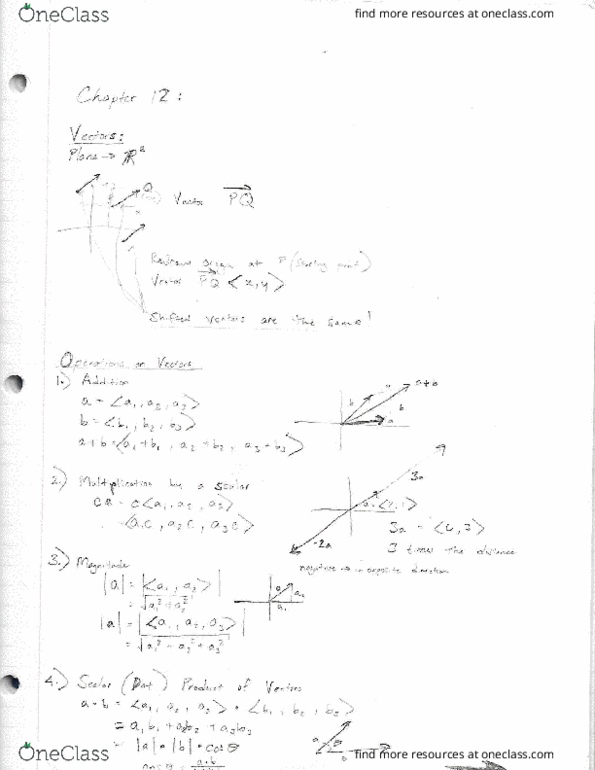 OneClass
find more resources at oneclass.com
Chapter 12:
Vectors:
Plane → ℝ²
Q
Vector PQ
Redraw origin at P (starting point)
Vector PQ <x,y>
Shifted vectors are the same!
Operations on Vectors
1.) Addition
a = <a₁, a₂, a₃>
b = <b₁, b₂, b₃>
a+b = <a₁+b₁, a₂+b₂, a₃+b₃>
a+b
b
a
b
a
2.) Multiplication by a scalar
ca = c<a₁, a₂, a₃>
= <a₁c, a₂c, a₃c>
3a
-2a
3 times the distance
negative is in opposite direction
3.) Magnitude
|a| = |<a₁, a₂>|
= √a₁²+a₂²
a
a₂
a₁
|a| = |<a₁, a₂, a₃>|
= √a₁²+a₂²+a₃²
4.) Scalar (Dot) Product of Vectors
a·b = <a₁, a₂, a₃> · <b₁, b₂, b₃>
= a₁b₁ + a₂b₂ + a₃b₃
= |a|·|b|·cosθ
cosθ = a·b
a
θ
b
OneClass
find more resources at oneclass.com